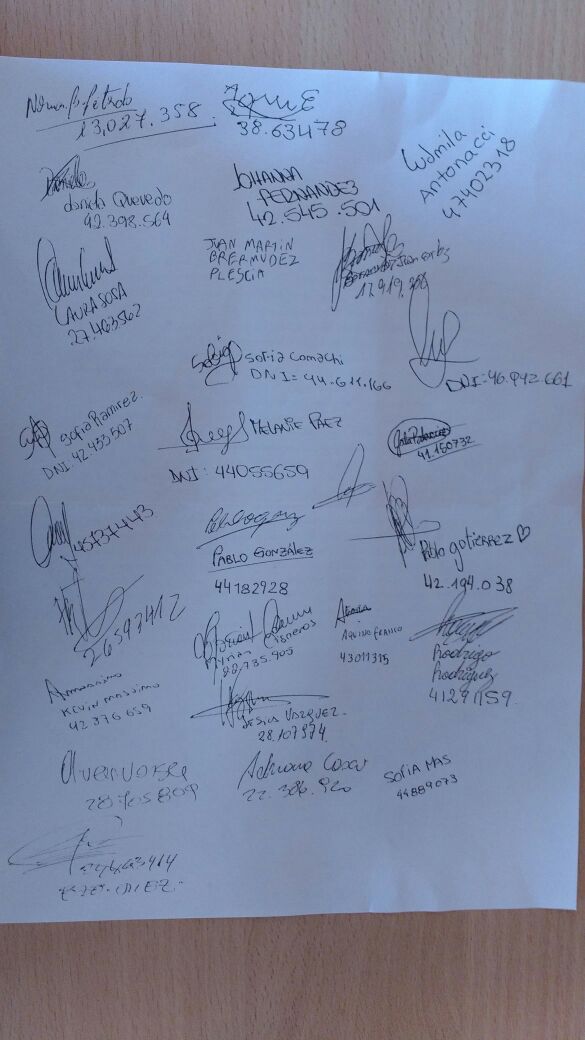 13,027.358
38.63478
Ludmila
Antonacci
47402318
daniela Quevedo
42.398.564
JOHANNA
FERNANDEZ
42.545.501
JUAN MARTIN
BRERMUDEZ
PLESCIA
LAURA SOSA
27.463562
Sofia Comachi
DNI= 44.611.166
DNI: 46.942.661
Sofia Ramirez.
DNI: 42.455507
MELANIE PAEZ
DNI: 44055659
41.180732
45737443
PABLO GONZÁLEZ
44182928
Pablo gutierrez
42.194.038
26593412
Myrian Cisneros
22.735.905
AQUINO FRANCO
43011315
Rodrigo
Rodriguez
41291159.
KEVIN MASSIMO
42 376 659
JESICA VAZQUEZ.
28.107974
28705809
Adriana
22.386.920
SOFIA MAS
44889073